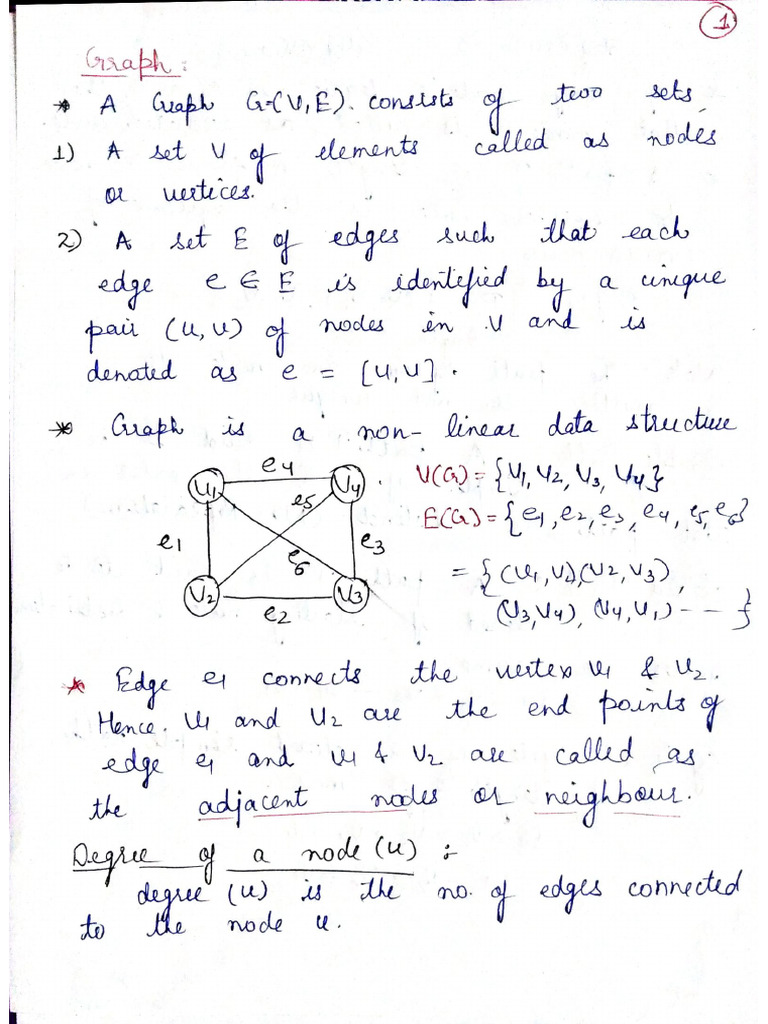 1
Graph:
* A Graph G=(V,E) consists of two sets
1) A set V of elements called as nodes
or vertices.
2) A set E of edges such that each
edge e ∈ E is identified by a unique
pair (u,v) of nodes in V and is
denoted as e = [u,v].
* Graph is a non-linear data structure
e4
V1 V4
e5
e1 e3
e6
V2 V3
e2
V(G)={V1,V2,V3,V4}
E(G)={e1,e2,e3,e4,e5,e6}
={(V1,V2)(V2,V3),
(V3,V4),(V4,V1)---}
* Edge e1 connects the vertex V1 & V2.
Hence V1 and V2 are the end points of
edge e1 and V1 & V2 are called as
the adjacent nodes or neighbour.
Degree of a node (u):
degree (u) is the no. of edges connected
to the node u.